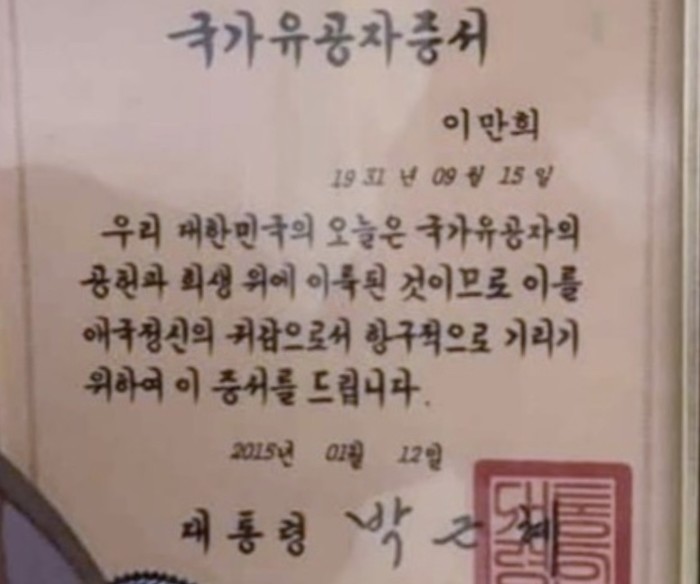 국가유공자증서
이만희
1931년 09월 15일
우리 대한민국의 오늘은 국가유공자의
공헌과 희생 위에 이룩된 것이므로 이를
애국정신의 귀감으로서 항구적으로 기리기
위하여 이 증서를 드립니다.
2015년 01월 12일
대통령 박근혜